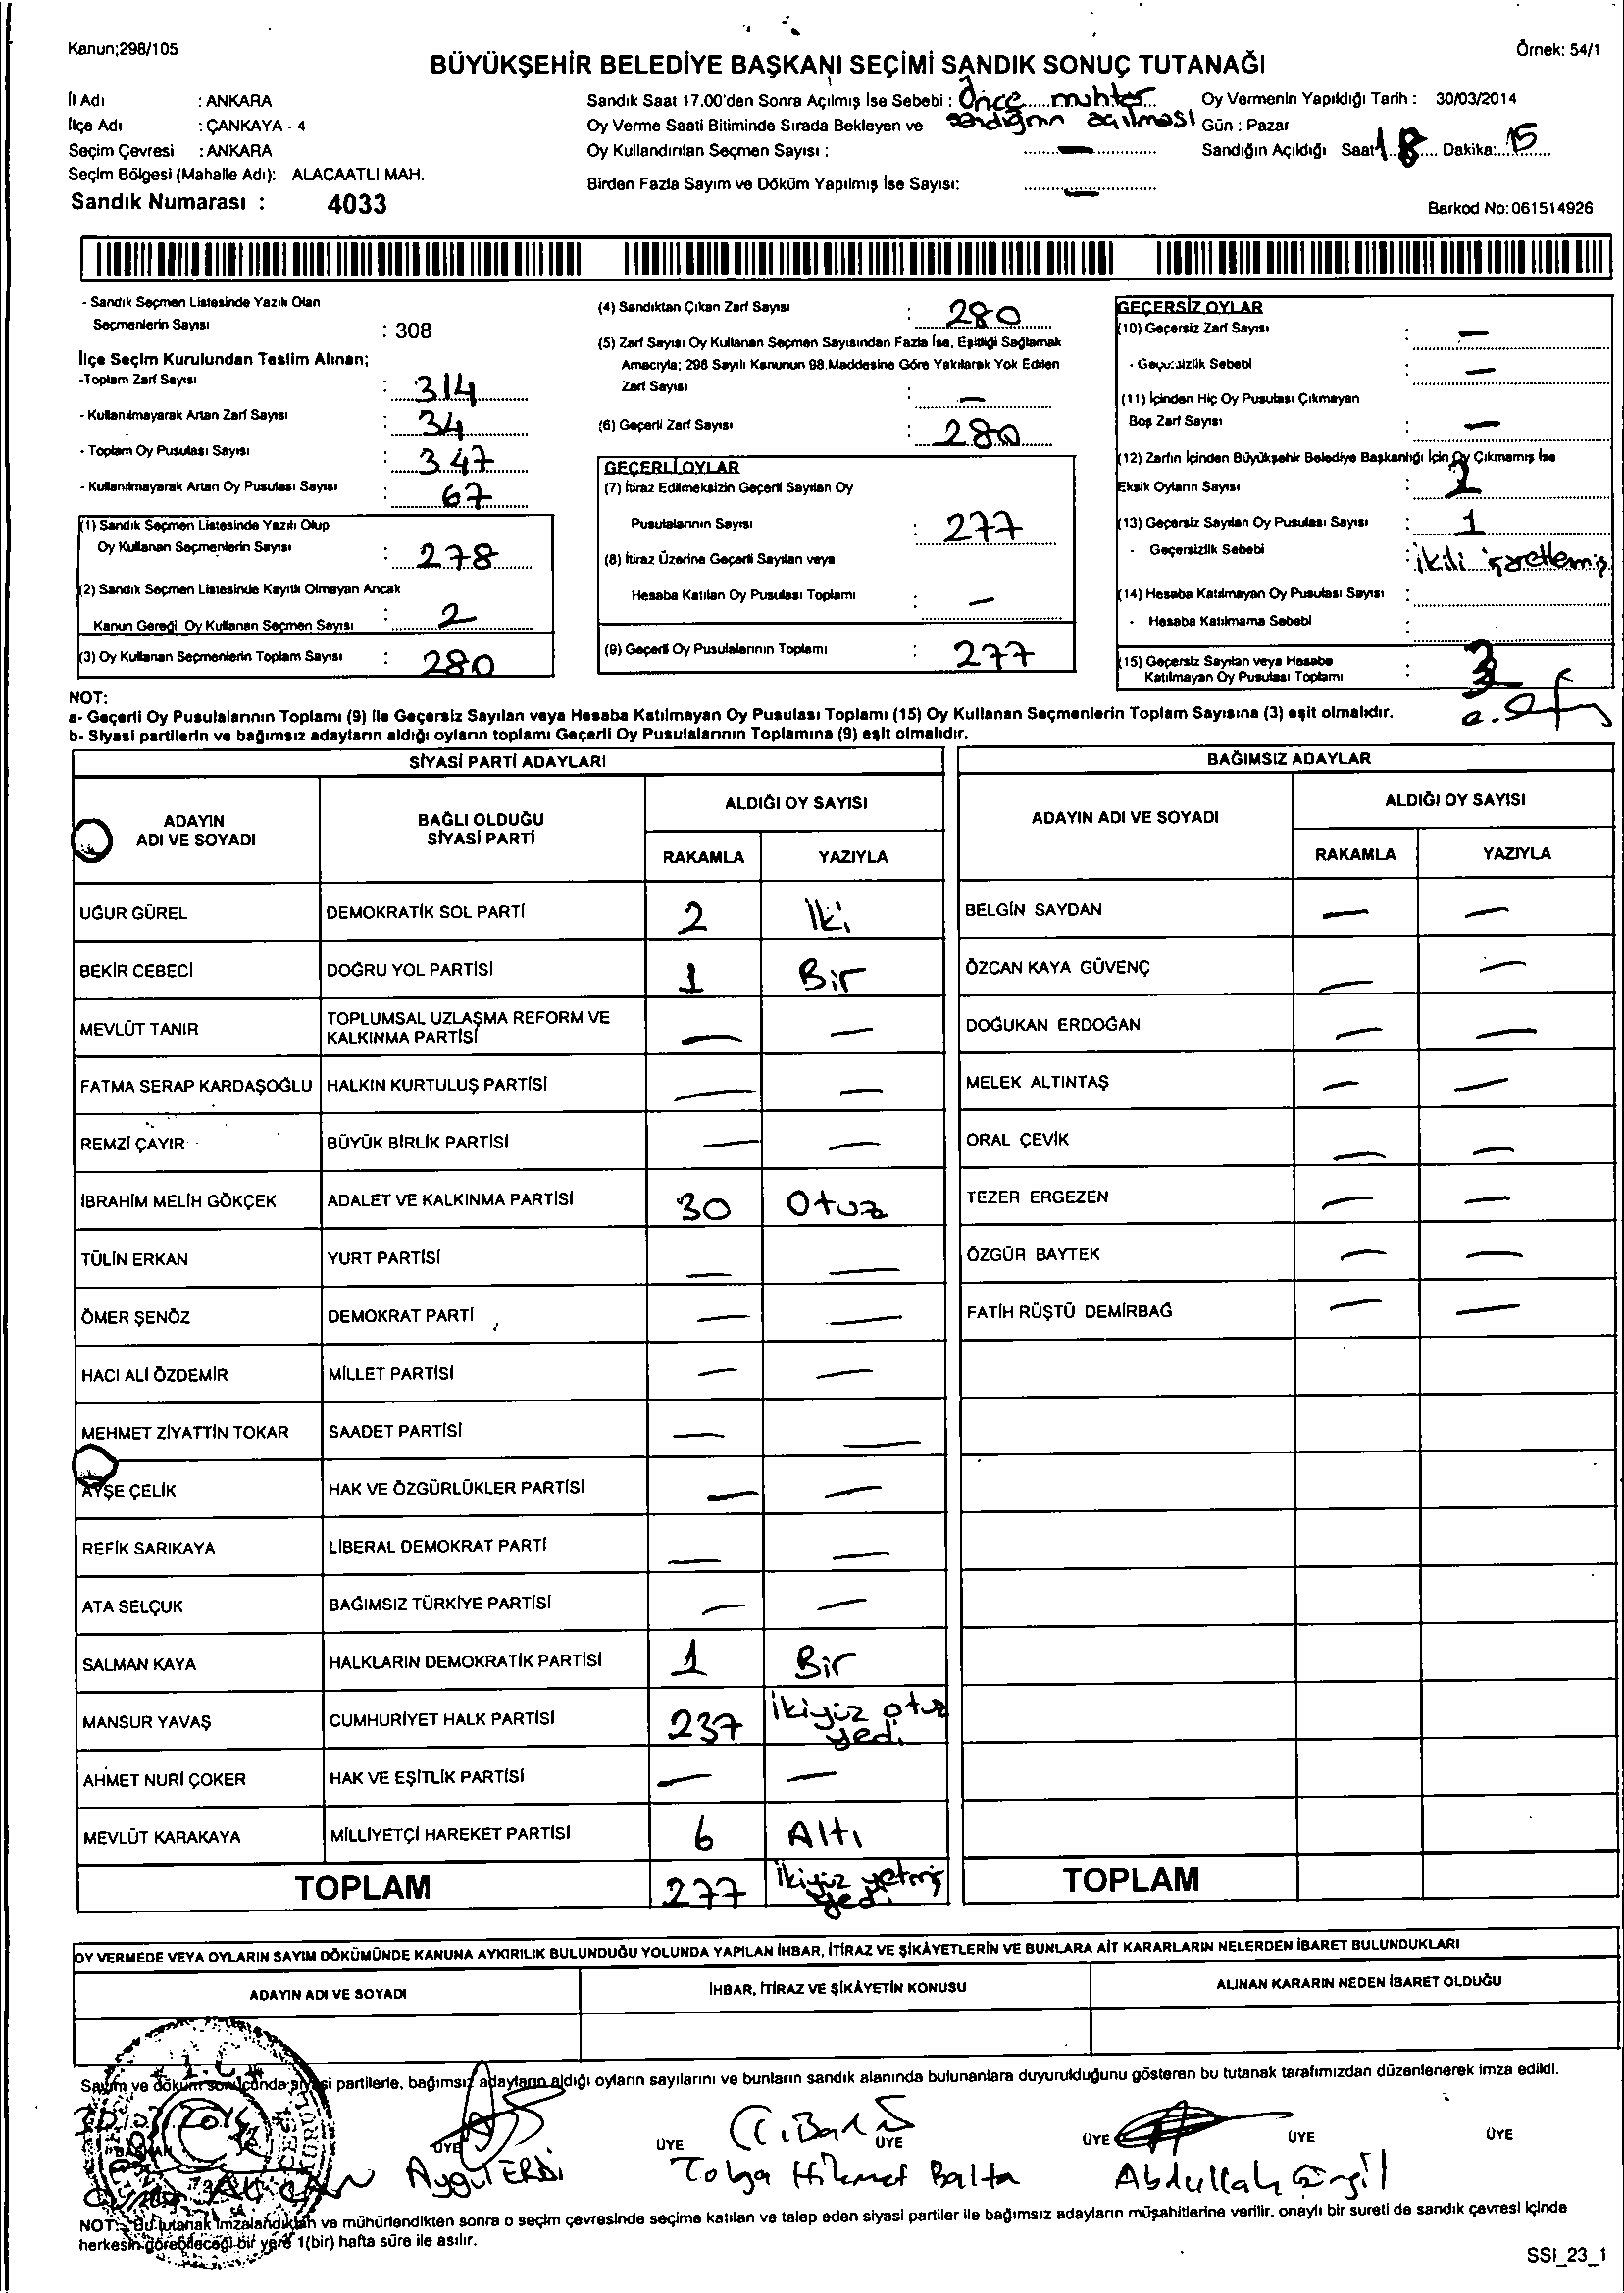 Kanun;298/105
Örnek: 54/1
BÜYÜKŞEHİR BELEDİYE BAŞKANI SEÇİMİ SANDIK SONUÇ TUTANAĞI
İl Adı : ANKARA
İlçe Adı : ÇANKAYA - 4
Seçim Çevresi : ANKARA
Seçim Bölgesi (Mahalle Adı): ALACAATLI MAH.
Sandık Numarası : 4033
Sandık Saat 17.00'den Sonra Açılmış İse Sebebi : Önce muhtar
sandığının açılması
Oy Verme Saati Bitiminde Sırada Bekleyen ve
Oy Kullandırılan Seçmen Sayısı : —
Birden Fazla Sayım ve Döküm Yapılmış İse Sayısı: —
Oy Vermenin Yapıldığı Tarih : 30/03/2014
Gün : Pazar
Sandığın Açıldığı Saat 18 Dakika: 15
Barkod No:061514926
- Sandık Seçmen Listesinde Yazılı Olan
Seçmenlerin Sayısı : 308
İlçe Seçim Kurulundan Teslim Alınan;
-Toplam Zarf Sayısı : 314
- Kullanılmayarak Artan Zarf Sayısı : 34
- Toplam Oy Pusulası Sayısı : 347
- Kullanılmayarak Artan Oy Pusulası Sayısı : 67
(1) Sandık Seçmen Listesinde Yazılı Olup
Oy Kullanan Seçmenlerin Sayısı : 278
(2) Sandık Seçmen Listesinde Kayıtlı Olmayan Ancak
Kanun Gereği Oy Kullanan Seçmen Sayısı : 2
(3) Oy Kullanan Seçmenlerin Toplam Sayısı : 280
(4) Sandıktan Çıkan Zarf Sayısı : 280
(5) Zarf Sayısı Oy Kullanan Seçmen Sayısından Fazla İse, Eşitliği Sağlamak
Amacıyla; 298 Sayılı Kanunun 98.Maddesine Göre Yakılarak Yok Edilen
Zarf Sayısı : —
(6) Geçerli Zarf Sayısı : 280
GEÇERLİ OYLAR
(7) İtiraz Edilmeksizin Geçerli Sayılan Oy
Pusulalarının Sayısı : 277
(8) İtiraz Üzerine Geçerli Sayılan veya
Hesaba Katılan Oy Pusulası Toplamı : —
(9) Geçerli Oy Pusulalarının Toplamı : 277
GEÇERSİZ OYLAR
(10) Geçersiz Zarf Sayısı : —
- Geçersizlik Sebebi : —
(11) İçinden Hiç Oy Pusulası Çıkmayan
Boş Zarf Sayısı : —
(12) Zarfın İçinden Büyükşehir Belediye Başkanlığı İçin Oy Çıkmamış İse
Eksik Oyların Sayısı : 2
(13) Geçersiz Sayılan Oy Pusulası Sayısı : 1
- Geçersizlik Sebebi : ikili işaretlemiş
(14) Hesaba Katılmayan Oy Pusulası Sayısı :
- Hesaba Katılmama Sebebi :
(15) Geçersiz Sayılan veya Hesaba
Katılmayan Oy Pusulası Toplamı : 3
NOT:
a- Geçerli Oy Pusulalarının Toplamı (9) ile Geçersiz Sayılan veya Hesaba Katılmayan Oy Pusulası Toplamı (15) Oy Kullanan Seçmenlerin Toplam Sayısına (3) eşit olmalıdır.
b- Siyasi partilerin ve bağımsız adayların aldığı oyların toplamı Geçerli Oy Pusulalarının Toplamına (9) eşit olmalıdır.
SİYASİ PARTİ ADAYLARI
ADAYIN ADI VE SOYADI BAĞLI OLDUĞU SİYASİ PARTİ ALDIĞI OY SAYISI RAKAMLA YAZIYLA
UĞUR GÜREL DEMOKRATİK SOL PARTİ 2 İki
BEKİR CEBECİ DOĞRU YOL PARTİSİ 1 Bir
MEVLÜT TANIR TOPLUMSAL UZLAŞMA REFORM VE KALKINMA PARTİSİ — —
FATMA SERAP KARDAŞOĞLU HALKIN KURTULUŞ PARTİSİ — —
REMZİ ÇAYIR BÜYÜK BİRLİK PARTİSİ — —
İBRAHİM MELİH GÖKÇEK ADALET VE KALKINMA PARTİSİ 30 Otuz
TÜLİN ERKAN YURT PARTİSİ — —
ÖMER ŞENÖZ DEMOKRAT PARTİ — —
HACI ALİ ÖZDEMİR MİLLET PARTİSİ — —
MEHMET ZİYATTİN TOKAR SAADET PARTİSİ — —
AYŞE ÇELİK HAK VE ÖZGÜRLÜKLER PARTİSİ — —
REFİK SARIKAYA LİBERAL DEMOKRAT PARTİ — —
ATA SELÇUK BAĞIMSIZ TÜRKİYE PARTİSİ — —
SALMAN KAYA HALKLARIN DEMOKRATİK PARTİSİ 1 Bir
MANSUR YAVAŞ CUMHURİYET HALK PARTİSİ 237 İkiyüz otuz yedi
AHMET NURİ ÇOKER HAK VE EŞİTLİK PARTİSİ — —
MEVLÜT KARAKAYA MİLLİYETÇİ HAREKET PARTİSİ 6 Altı
TOPLAM 277 İkiyüz yetmiş yedi
BAĞIMSIZ ADAYLAR
ADAYIN ADI VE SOYADI ALDIĞI OY SAYISI RAKAMLA YAZIYLA
BELGİN SAYDAN — —
ÖZCAN KAYA GÜVENÇ — —
DOĞUKAN ERDOĞAN — —
MELEK ALTINTAŞ — —
ORAL ÇEVİK — —
TEZER ERGEZEN — —
ÖZGÜR BAYTEK — —
FATİH RÜŞTÜ DEMİRBAĞ — —
TOPLAM
OY VERMEDE VEYA OYLARIN SAYIM DÖKÜMÜNDE KANUNA AYKIRILIK BULUNDUĞU YOLUNDA YAPILAN İHBAR, İTİRAZ VE ŞİKÂYETLERİN VE BUNLARA AİT KARARLARIN NELERDEN İBARET BULUNDUKLARI
ADAYIN ADI VE SOYADI İHBAR, İTİRAZ VE ŞİKÂYETİN KONUSU ALINAN KARARIN NEDEN İBARET OLDUĞU
T.C.
Sayım ve döküm sonucunda siyasi partilerle, bağımsız adayların aldığı oyların sayılarını ve bunların sandık alanında bulunanlara duyurulduğunu gösteren bu tutanak tarafımızdan düzenlenerek imza edildi.
BAŞKAN ÜYE ÜYE ÜYE ÜYE ÜYE ÜYE
Aygül ERDİ Tolga Hikmet Balta Abdullah
NOT: Bu tutanak imzalandıktan ve mühürlendikten sonra o seçim çevresinde seçime katılan ve talep eden siyasi partiler ile bağımsız adayların müşahitlerine verilir, onaylı bir sureti de sandık çevresi içinde
herkesin görebileceği bir yere 1(bir) hafta süre ile asılır.
SSI_23_1